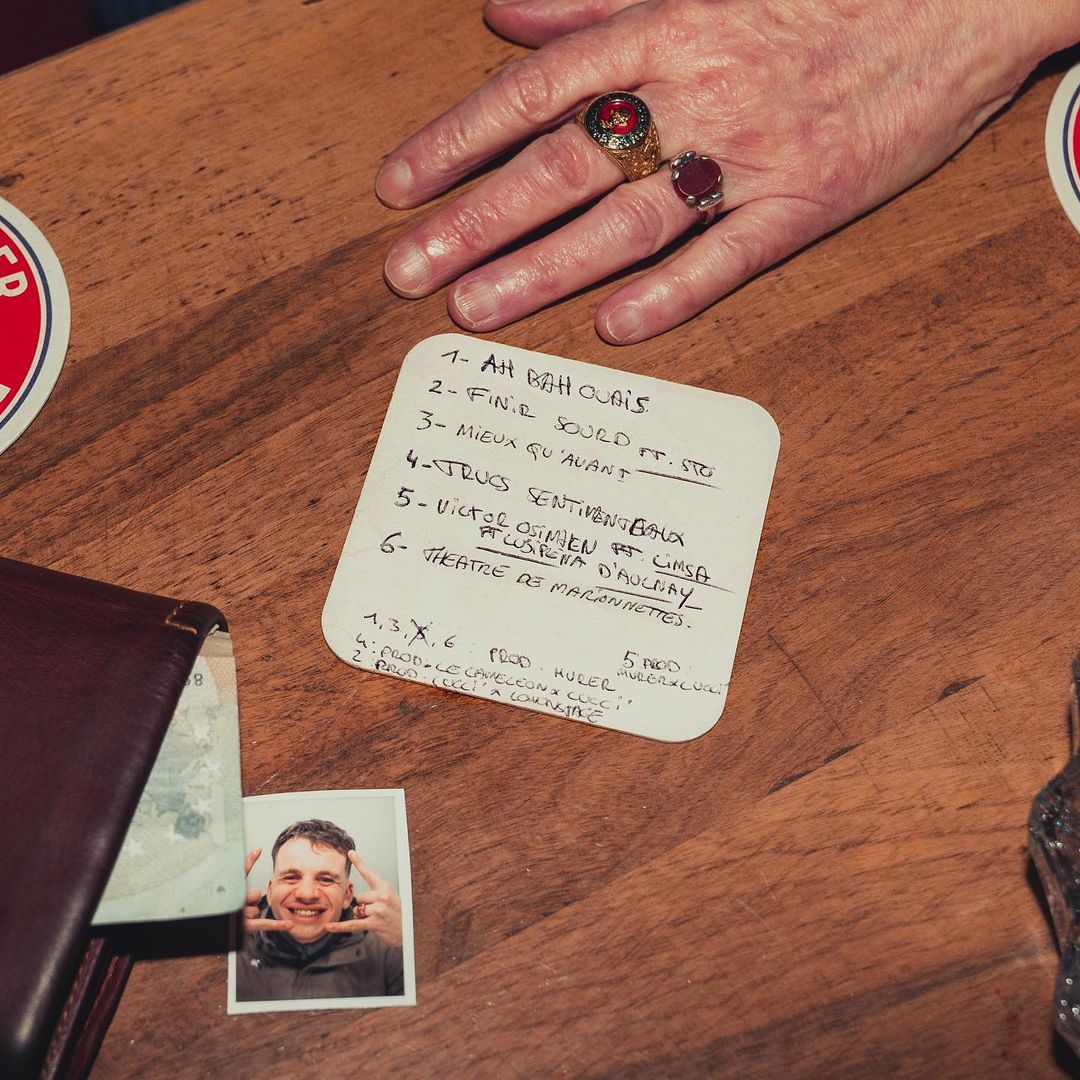 1- AH BAH OUAIS
2- FINIR SOURD FT. STO
3- MIEUX QU'AVANT
4- TRUCS SENTIMENTEAUX
5- VICTOR OSIMHEN FT. LIMSA
FT LUSIPENA D'AULNAY
6- THEATRE DE MARIONNETTES.
1, 3, 6 : PROD. MURER
5 PROD:
MURER X LUCCI'
4: PROD. LE CAMELEON X LUCCI'
2 PROD. LUCCI' X LOWONSTAGE
ER